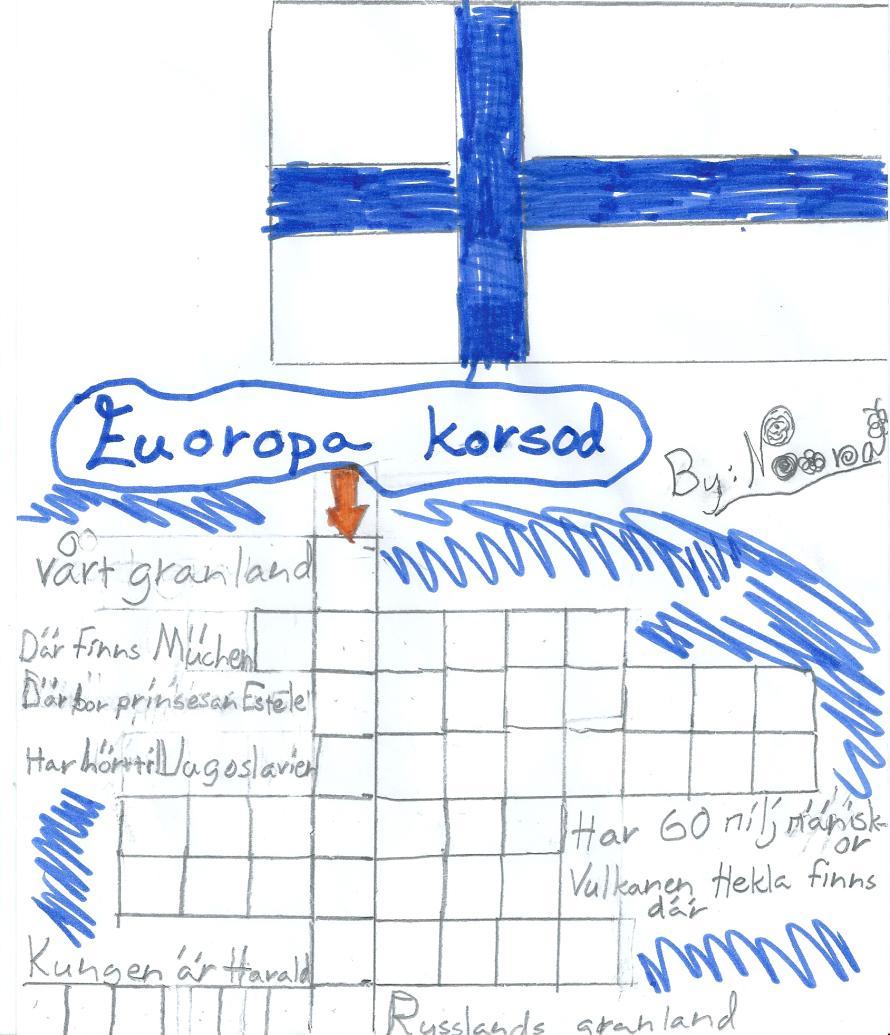 Euoropa korsod
By: Noora
vårt granland
Där finns Müchen
Där bor prinsesan Estele
Har hört til Jugoslavien
Har 60 milj mänisk-
or
Vulkanen Hekla finns
där
Kungen är Harald
Russlands granland